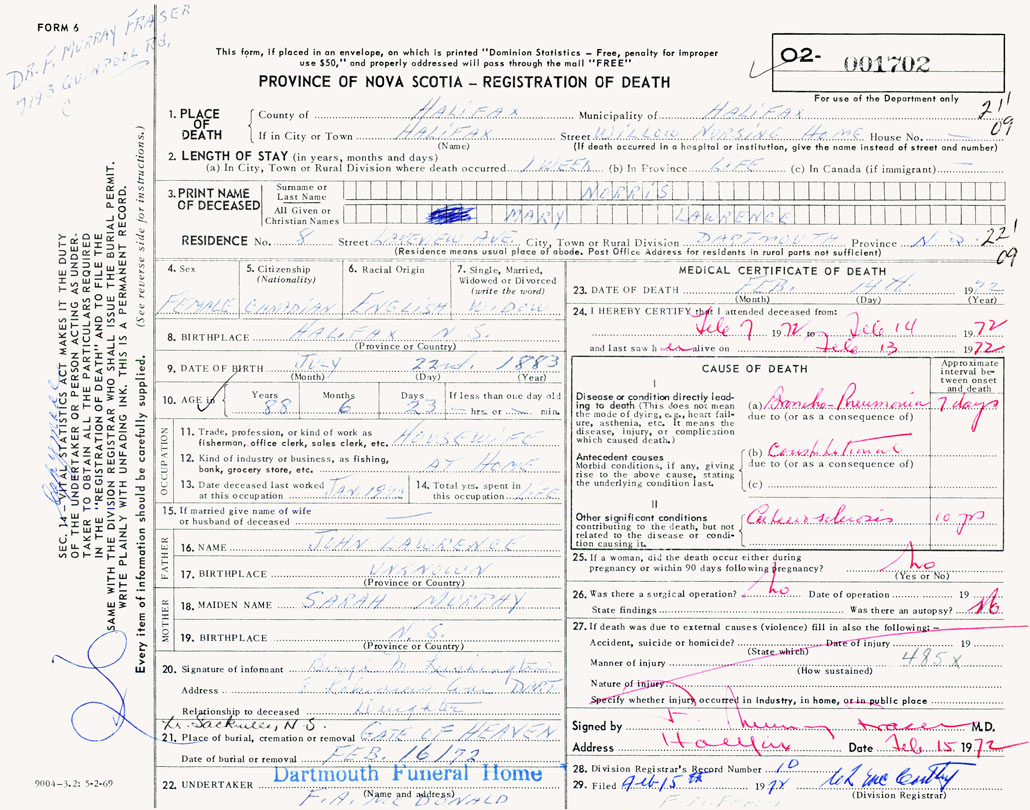 FORM 6
DR. F. MURRAY FRASER
This form, if placed in an envelope, on which is printed "Dominion Statistics – Free, penalty for improper
use $50," and properly addressed will pass through the mail "FREE"
PROVINCE OF NOVA SCOTIA – REGISTRATION OF DEATH
O2- 001702
For use of the Department only
21'
09
1. PLACE OF DEATH
County of HALIFAX Municipality of HALIFAX
If in City or Town HALIFAX Street WILLOW NURSING HOME House No. —
(Name) (If death occurred in a hospital or institution, give the name instead of street and number)
2. LENGTH OF STAY (in years, months and days)
(a) In City, Town or Rural Division where death occurred 1 WEEK (b) In Province LIFE (c) In Canada (if immigrant) —
3. PRINT NAME OF DECEASED
Surname or Last Name NORRIS
All Given or Christian Names MARY LAWRENCE
RESIDENCE No. 8 Street LAKEVIEW AVE. City, Town or Rural Division DARTMOUTH Province N.S.
22'
09
(Residence means usual place of abode. Post Office Address for residents in rural parts not sufficient)
4. Sex FEMALE
5. Citizenship (Nationality) CANADIAN
6. Racial Origin ENGLISH
7. Single, Married, Widowed or Divorced (write the word) WIDOW
8. BIRTHPLACE HALIFAX N.S.
(Province or Country)
9. DATE OF BIRTH JULY 22nd. 1883
(Month) (Day) (Year)
10. AGE in Years 88 Months 6 Days 23 If less than one day old — hrs. or — min.
OCCUPATION
11. Trade, profession, or kind of work as fisherman, office clerk, sales clerk, etc. HOUSEWIFE
12. Kind of industry or business, as fishing, bank, grocery store, etc. AT HOME
13. Date deceased last worked at this occupation JAN 1972
14. Total yrs. spent in this occupation LIFE
15. If married give name of wife or husband of deceased —
FATHER
16. NAME JOHN LAWRENCE
17. BIRTHPLACE UNKNOWN
(Province or Country)
MOTHER
18. MAIDEN NAME SARAH MURPHY
19. BIRTHPLACE N.S.
(Province or Country)
20. Signature of informant
Address DART
Relationship to deceased Daughter
Sackville, N.S.
21. Place of burial, cremation or removal GATE OF HEAVEN
Date of burial or removal FEB. 16/72
Dartmouth Funeral Home
22. UNDERTAKER
(Name and address)
F.A. McDONALD
9004-3.2: 5-2-69
MEDICAL CERTIFICATE OF DEATH
23. DATE OF DEATH FEB. 14TH 1972
(Month) (Day) (Year)
24. I HEREBY CERTIFY that I attended deceased from:
Feb 7 1972 to Feb 14 1972
and last saw her alive on Feb 13 1972
CAUSE OF DEATH
Approximate interval between onset and death
I
Disease or condition directly leading to death (This does not mean the mode of dying, e.g., heart failure, asthenia, etc. It means the disease, injury, or complication which caused death.)
(a) Broncho-Pneumonia 7 days
due to (or as a consequence of)
Antecedent causes
Morbid conditions, if any, giving rise to the above cause, stating the underlying condition last.
(b)
due to (or as a consequence of)
(c)
II
Other significant conditions contributing to the death, but not related to the disease or condition causing it.
10 yrs
25. If a woman, did the death occur either during pregnancy or within 90 days following pregnancy? No
(Yes or No)
26. Was there a surgical operation? No Date of operation 19
State findings Was there an autopsy? No
27. If death was due to external causes (violence) fill in also the following: –
Accident, suicide or homicide? Date of injury 19
(State which)
Manner of injury 485X
(How sustained)
Nature of injury
Specify whether injury occurred in Industry, in home, or in public place
Signed by F. Murray Fraser M.D.
Address Halifax Date Feb 15 1972
28. Division Registrar's Record Number 10
29. Filed Feb 15th 1972
(Division Registrar)
SEC. 14 – VITAL STATISTICS ACT MAKES IT THE DUTY
OF THE UNDERTAKER OR PERSON ACTING AS UNDER-
TAKER TO OBTAIN ALL THE PARTICULARS REQUIRED
IN THE "REGISTRATION OF DEATH" AND TO FILE THE
SAME WITH THE DIVISION REGISTRAR WHO SHALL ISSUE THE BURIAL PERMIT.
WRITE PLAINLY WITH UNFADING INK. THIS IS A PERMANENT RECORD.
Every item of information should be carefully supplied. (See reverse side for instructions.)